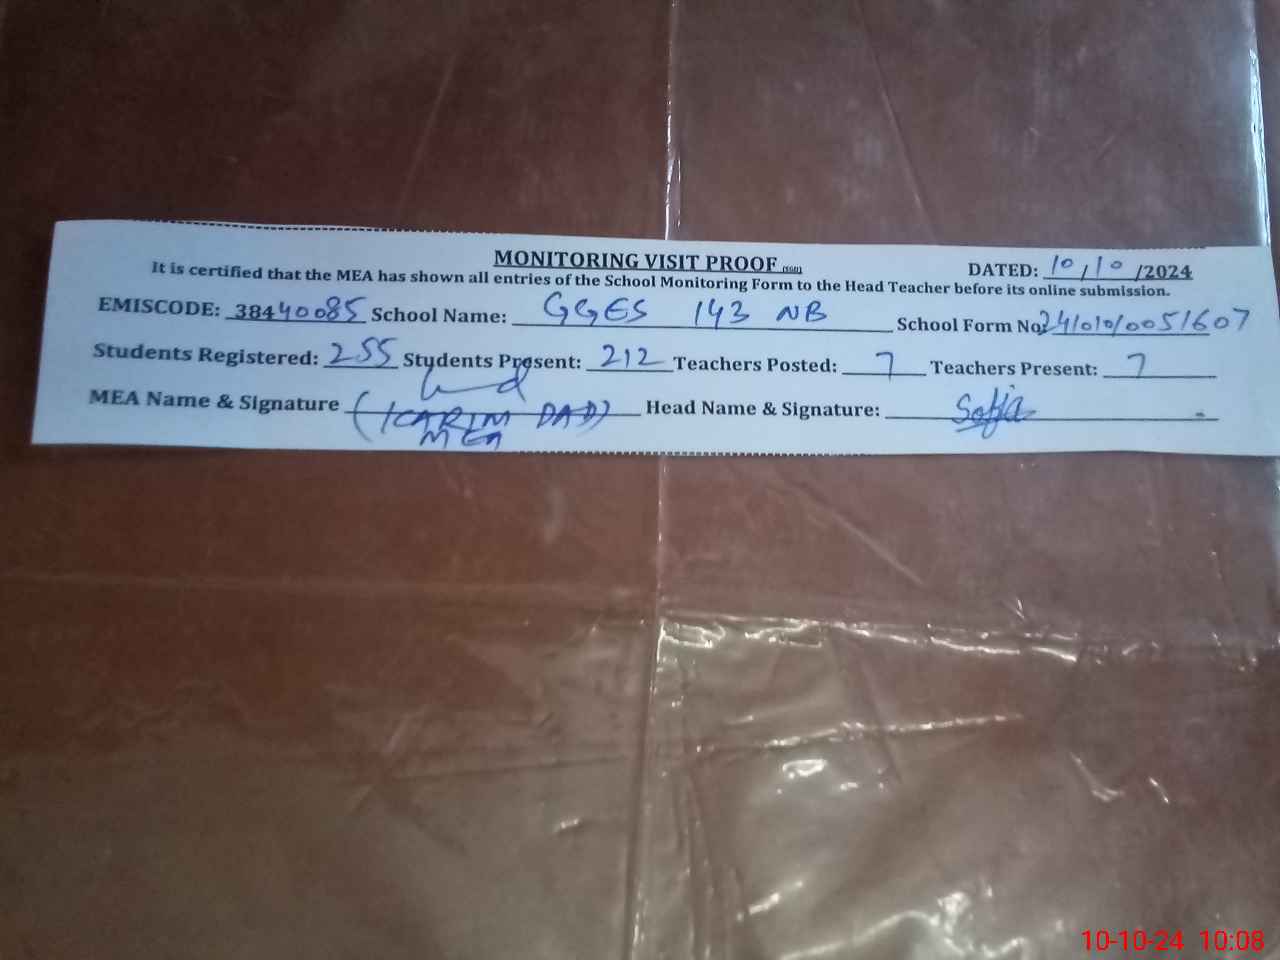 MONITORING VISIT PROOF
DATED: 10/10/2024
It is certified that the MEA has shown all entries of the School Monitoring Form to the Head Teacher before its online submission.
EMISCODE: 38440085 School Name: GGES 143 NB School Form No: 241010/0051607
Students Registered: 255 Students Present: 212 Teachers Posted: 7 Teachers Present: 7
MEA Name & Signature (KARIM DAD) Head Name & Signature: Sofia
MEA
10-10-24 10:08